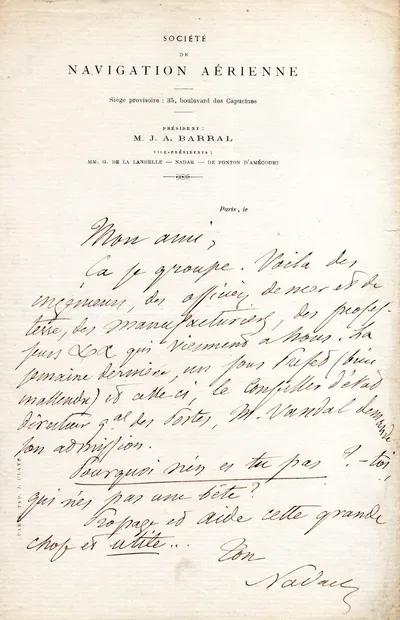 SOCIÉTÉ
DE
NAVIGATION AÉRIENNE
Siége provisoire : 35, boulevard des Capucines
PRÉSIDENT :
M. J. A. BARRAL
VICE-PRÉSIDENTS :
MM. G. DE LA LANDELLE — NADAR — DE PONTON D'AMÉCOURT
Paris, le
Mon ami,
Ça se groupe. Voilà des
ingénieurs, des officiers de mer et de
terre, des manufacturiers, des profes-
seurs &&& qui viennent à nous. La
semaine dernière, un sous Préfet (
inattendu) et celle ci, le Conseiller d'état
Directeur gal des Postes, M. Vandal demande
son admission.
Pourquoi n'en es tu pas ? – toi,
qui n'es pas une bête ?
Propage et aide cette grande
chose et utile...
Ton
Nadar